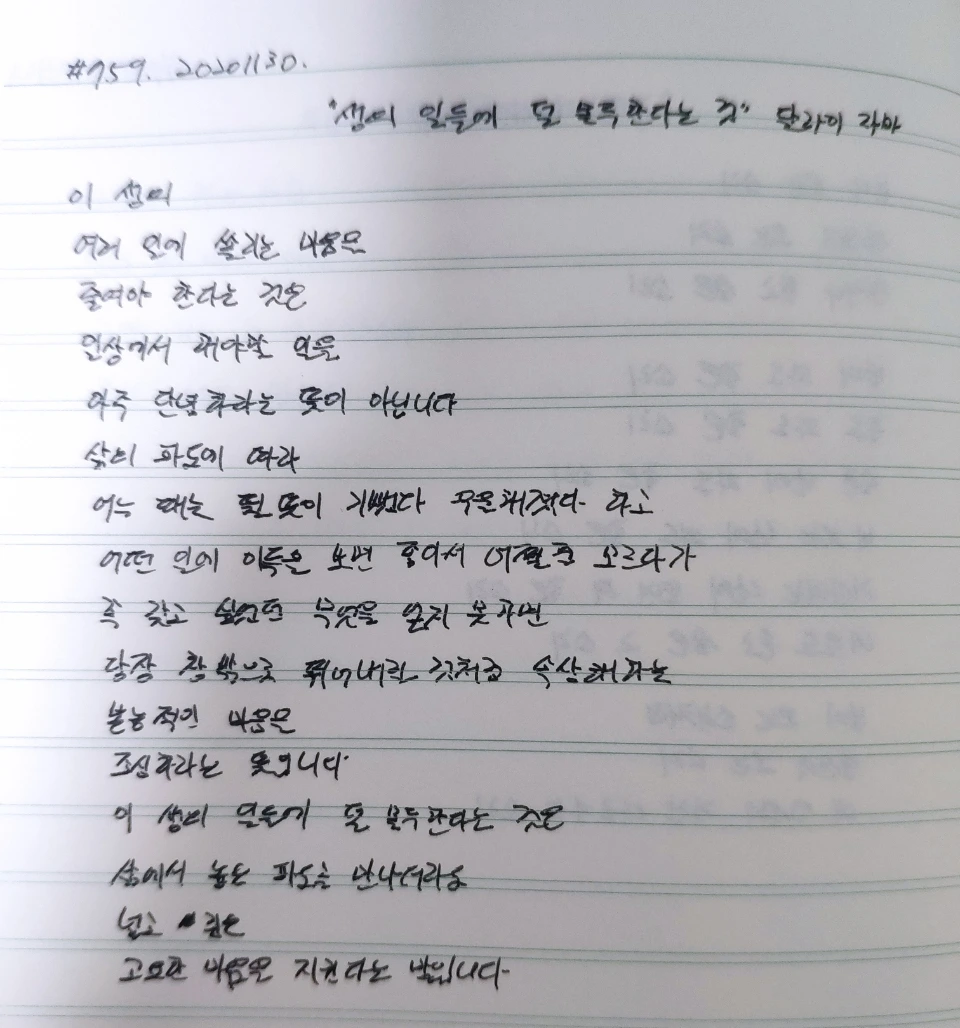 #959. 20201130.
"생의 일들에 덜 몰두한다는 것" 달라이 라마
이 생의
여러 일에 쏠리는 마음을
줄여야 한다는 것은
일상에서 해야할 일을
아주 단념하라는 뜻이 아닙니다
삶의 파도에 따라
어느 때는 뛸 듯이 기뻤다 우울해졌다 하고
어떤 일에 이득을 보면 좋아서 어쩔 줄 모르다가
혹 갖고 싶었던 무엇을 얻지 못하면
당장 창 밖으로 뛰어내릴 것처럼 속상해하는
본능적인 마음을
조심하라는 뜻입니다
이 생의 일들에 덜 몰두한다는 것은
삶에서 높은 파도를 만나더라도
넓고 깊은
고요한 마음을 지킨다는 말입니다